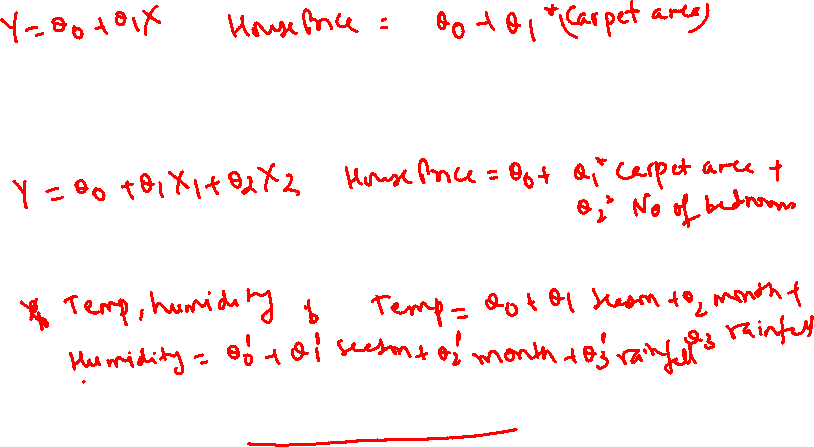 Y = θ0 + θ1X House Price = θ0 + θ1 * (Carpet area)
Y = θ0 + θ1X1 + θ2X2 House Price = θ0 + θ1 * Carpet area +
θ2 * No of bedrooms
Temp, humidity Temp = θ0 + θ1 season + θ2 month +
θ3 rainfall
Humidity = θ0' + θ1' season + θ2' month + θ3' rainfall